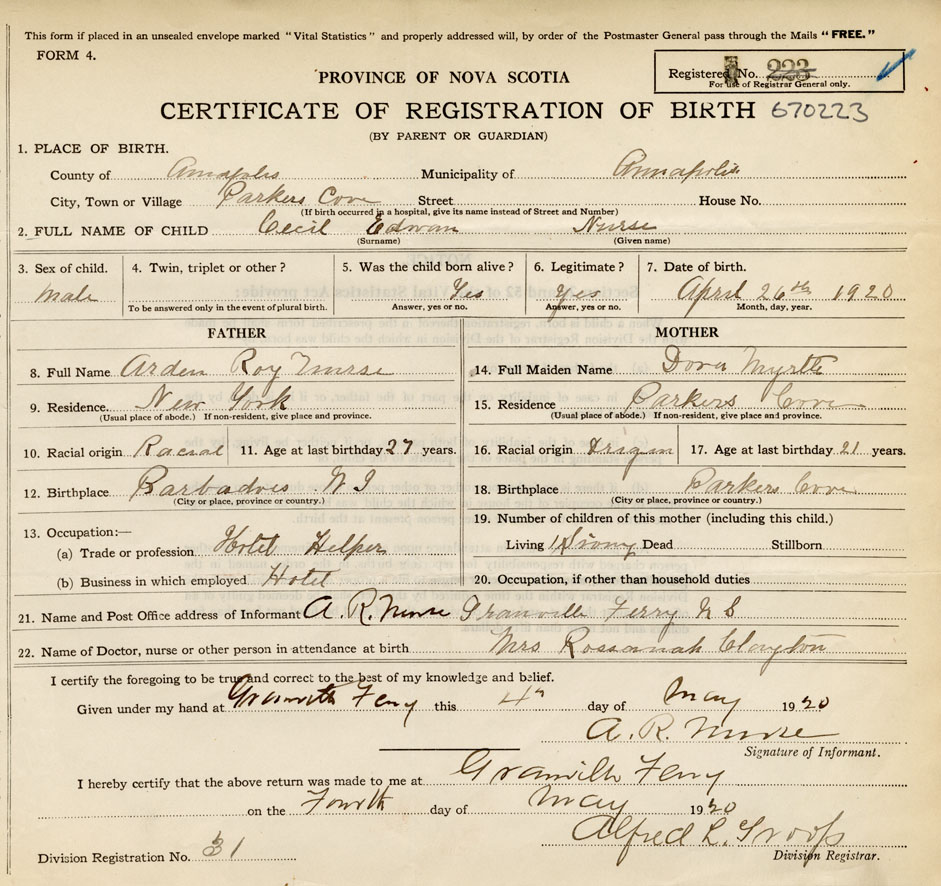 This form if placed in an unsealed envelope marked "Vital Statistics" and properly addressed will, by order of the Postmaster General pass through the Mails "FREE."
FORM 4.
PROVINCE OF NOVA SCOTIA
Registered No. 223
For use of Registrar General only.
CERTIFICATE OF REGISTRATION OF BIRTH 670223
(BY PARENT OR GUARDIAN)
1. PLACE OF BIRTH.
County of Annapolis Municipality of Annapolis
City, Town or Village Parkers Cove Street House No.
(If birth occurred in a hospital, give its name instead of Street and Number)
2. FULL NAME OF CHILD Cecil Edwan Nurse
(Surname) (Given name)
3. Sex of child. 4. Twin, triplet or other? 5. Was the child born alive? 6. Legitimate? 7. Date of birth.
Male Yes Yes April 26th 1920
To be answered only in the event of plural birth. Answer, yes or no. Answer, yes or no. Month, day, year.
FATHER MOTHER
8. Full Name Arden Roy Nurse
14. Full Maiden Name Dora Myrtle
9. Residence. New York
15. Residence Parkers Cove
(Usual place of abode.) If non-resident, give place and province.
(Usual place of abode.) If non-resident, give place and province.
10. Racial origin Racial 11. Age at last birthday 27 years.
16. Racial origin Origin 17. Age at last birthday 21 years.
12. Birthplace Barbadoes W I
18. Birthplace Parkers Cove
(City or place, province or country.)
(City or place, province or country.)
13. Occupation:—
19. Number of children of this mother (including this child.)
(a) Trade or profession Hotel Helper
Living 1 Dead Stillborn
(b) Business in which employed Hotel
20. Occupation, if other than household duties
21. Name and Post Office address of Informant A. R. Nurse Granville Ferry N S
22. Name of Doctor, nurse or other person in attendance at birth Mrs Rossanah Clayton
I certify the foregoing to be true and correct to the best of my knowledge and belief.
Given under my hand at Granville Ferry this 4th day of May 1920
A. R. Nurse
Signature of Informant.
I hereby certify that the above return was made to me at Granville Ferry
on the Fourth day of May 1920
Alfred L.
Division Registrar.
Division Registration No. 31